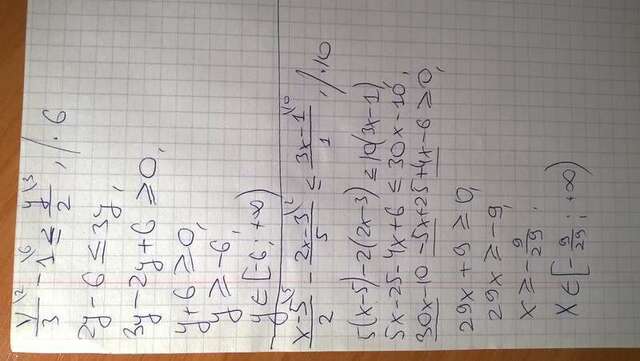 y\2/3 - 1\6 ≤ y\3/2, /·6
2y-6 ≤ 3y,
3y-2y+6 ≥ 0,
y+6 ≥ 0,
y ≥ -6,
y ∈ [-6; +∞)
x-5\5/2 - 2x-3\2/5 ≤ 3x-1\10/1, /·10
5(x-5)-2(2x-3) ≤ 10(3x-1)
5x-25-4x+6 ≤ 30x-10,
30x-10-5x+25+4x-6 ≥ 0,
29x+9 ≥ 0,
29x ≥ -9,
x ≥ -9/29,
x ∈ [-9/29; +∞)